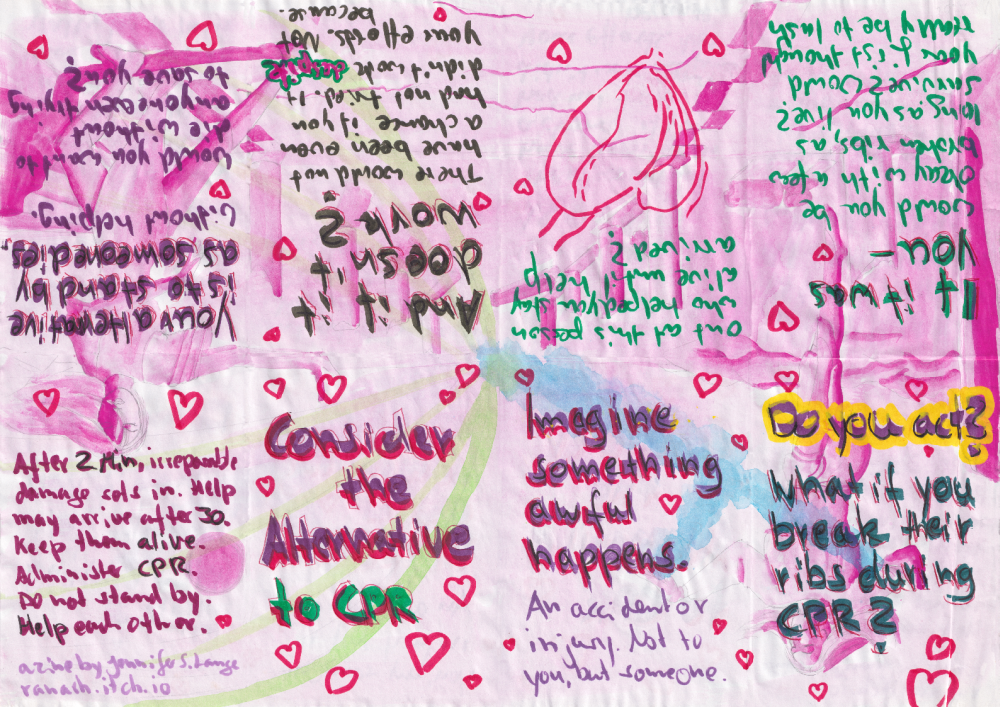 Consider
the
Alternative
to CPR
Imagine
something
awful
happens.
An accident or
injury. Not to
you, but someone.
Do you act?
What if you
break their
ribs during
CPR?
If it was
You -
Would you be
okay with a few
broken ribs, as
long as you live?
survive? Would
your first thought
really be to lash
out at this person
who helped you stay
alive until help
arrived?
And if it
doesn't
work?
There would not
have been even
a chance if you
had not tried. It
didn't work despite
your efforts. Not
because.
Your alternative
is to stand by
as someone dies,
without helping.
Would you want to
die without
anyone even trying
to save you?
After 2 Min, irreparable
damage sets in. Help
may arrive after 30.
Keep them alive.
Administer CPR.
Do not stand by.
Help each other.
a zine by Jennifer S. Lange
ranarh.itch.io